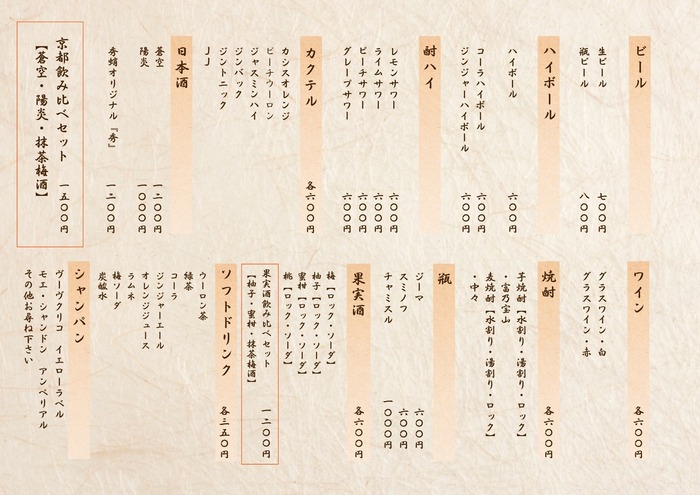 ビール
生ビール 七〇〇円
瓶ビール 八〇〇円
ハイボール
ハイボール 六〇〇円
コーラハイボール 六〇〇円
ジンジャーハイボール 六〇〇円
酎ハイ
レモンサワー 六〇〇円
ライムサワー 六〇〇円
ピーチサワー 六〇〇円
グレープサワー 六〇〇円
カクテル 各六〇〇円
カシスオレンジ
ピーチウーロン
ジャスミンハイ
ジンバック
ジントニック
JJ
日本酒
蒼空 一二〇〇円
陽炎 一〇〇〇円
秀蛸オリジナル『秀』 一二〇〇円
京都飲み比べセット 一五〇〇円
【蒼空・陽炎・抹茶梅酒】
ワイン 各六〇〇円
グラスワイン・白
グラスワイン・赤
焼酎 各六〇〇円
芋焼酎【水割り・湯割り・ロック】
・富乃宝山
麦焼酎【水割り・湯割り・ロック】
・中々
瓶
ジーマ 六〇〇円
スミノフ 六〇〇円
チャミスル 一〇〇〇円
果実酒 各六〇〇円
梅【ロック・ソーダ】
柚子【ロック・ソーダ】
蜜柑【ロック・ソーダ】
桃【ロック・ソーダ】
果実酒飲み比べセット 一二〇〇円
【柚子・蜜柑・抹茶梅酒】
ソフトドリンク 各三五〇円
ウーロン茶
緑茶
コーラ
ジンジャーエール
オレンジジュース
ラムネ
梅ソーダ
炭酸水
シャンパン
ヴーヴクリコ イエローラベル
モエ・シャンドン アンペリアル
その他お尋ね下さい